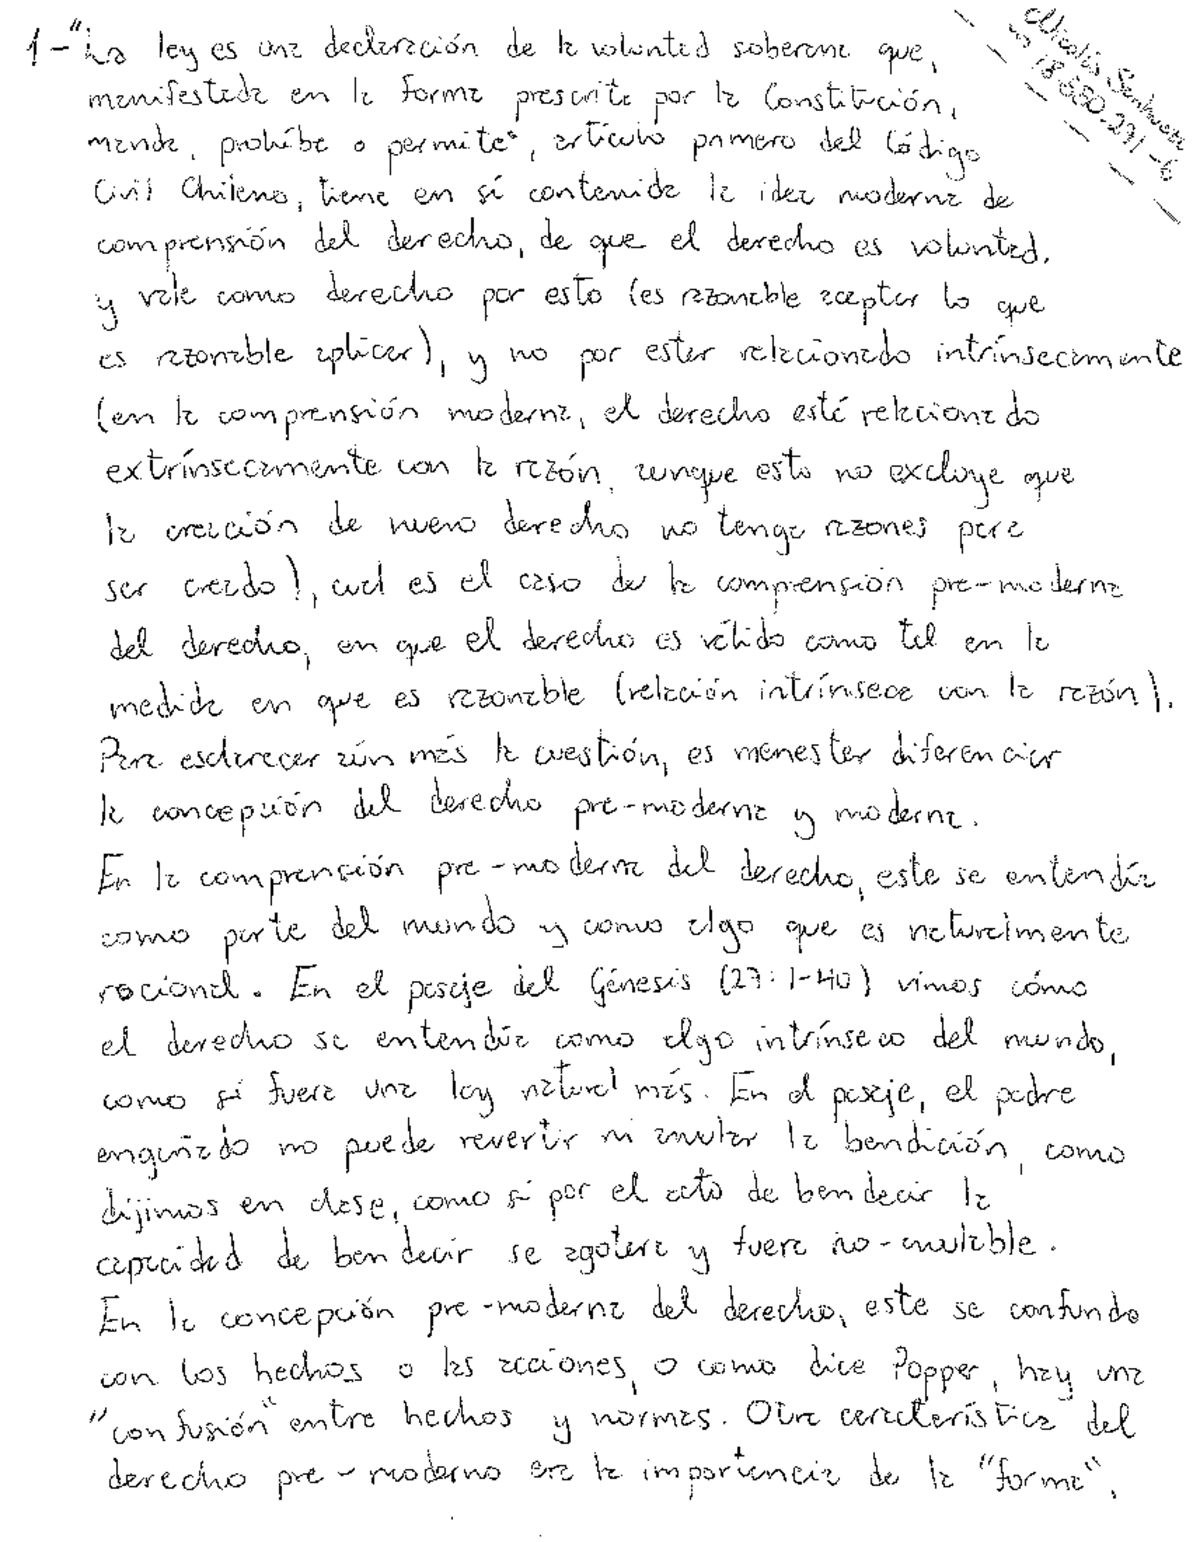 Nicolás Sanhueza
18.550.271-6
1-"La ley es una declaración de la voluntad soberana que,
manifestada en la forma prescrita por la Constitución,
manda, prohíbe o permite", artículo primero del Código
Civil Chileno, tiene en sí contenida la idea moderna de
comprensión del derecho, de que el derecho es voluntad,
y vale como derecho por esto (es razonable aceptar lo que
es razonable aplicar), y no por estar relacionado intrínsecamente
(en la comprensión moderna, el derecho está relacionado
extrínsecamente con la razón, aunque esto no excluye que
la creación de nuevo derecho no tenga razones para
ser creado), cual es el caso de la comprensión pre-moderna
del derecho, en que el derecho es válido como tal en la
medida en que es razonable (relación intrínseca con la razón).
Para esclarecer aún más la cuestión, es menester diferenciar
la concepción del derecho pre-moderna y moderna.
En la comprensión pre-moderna del derecho, este se entendía
como parte del mundo y como algo que es naturalmente
racional. En el pasaje del Génesis (27:1-40) vimos cómo
el derecho se entendía como algo intrínseco del mundo,
como si fuera una ley natural más. En el pasaje, el padre
engañado no puede revertir ni anular la bendición, como
dijimos en clase, como si por el acto de bendecir la
capacidad de bendecir se agotara y fuera no-anulable.
En la concepción pre-moderna del derecho, este se confunde
con los hechos o las acciones, o como dice Popper, hay una
"confusión" entre hechos y normas. Otra característica del
derecho pre-moderno era la importancia de la "forma",